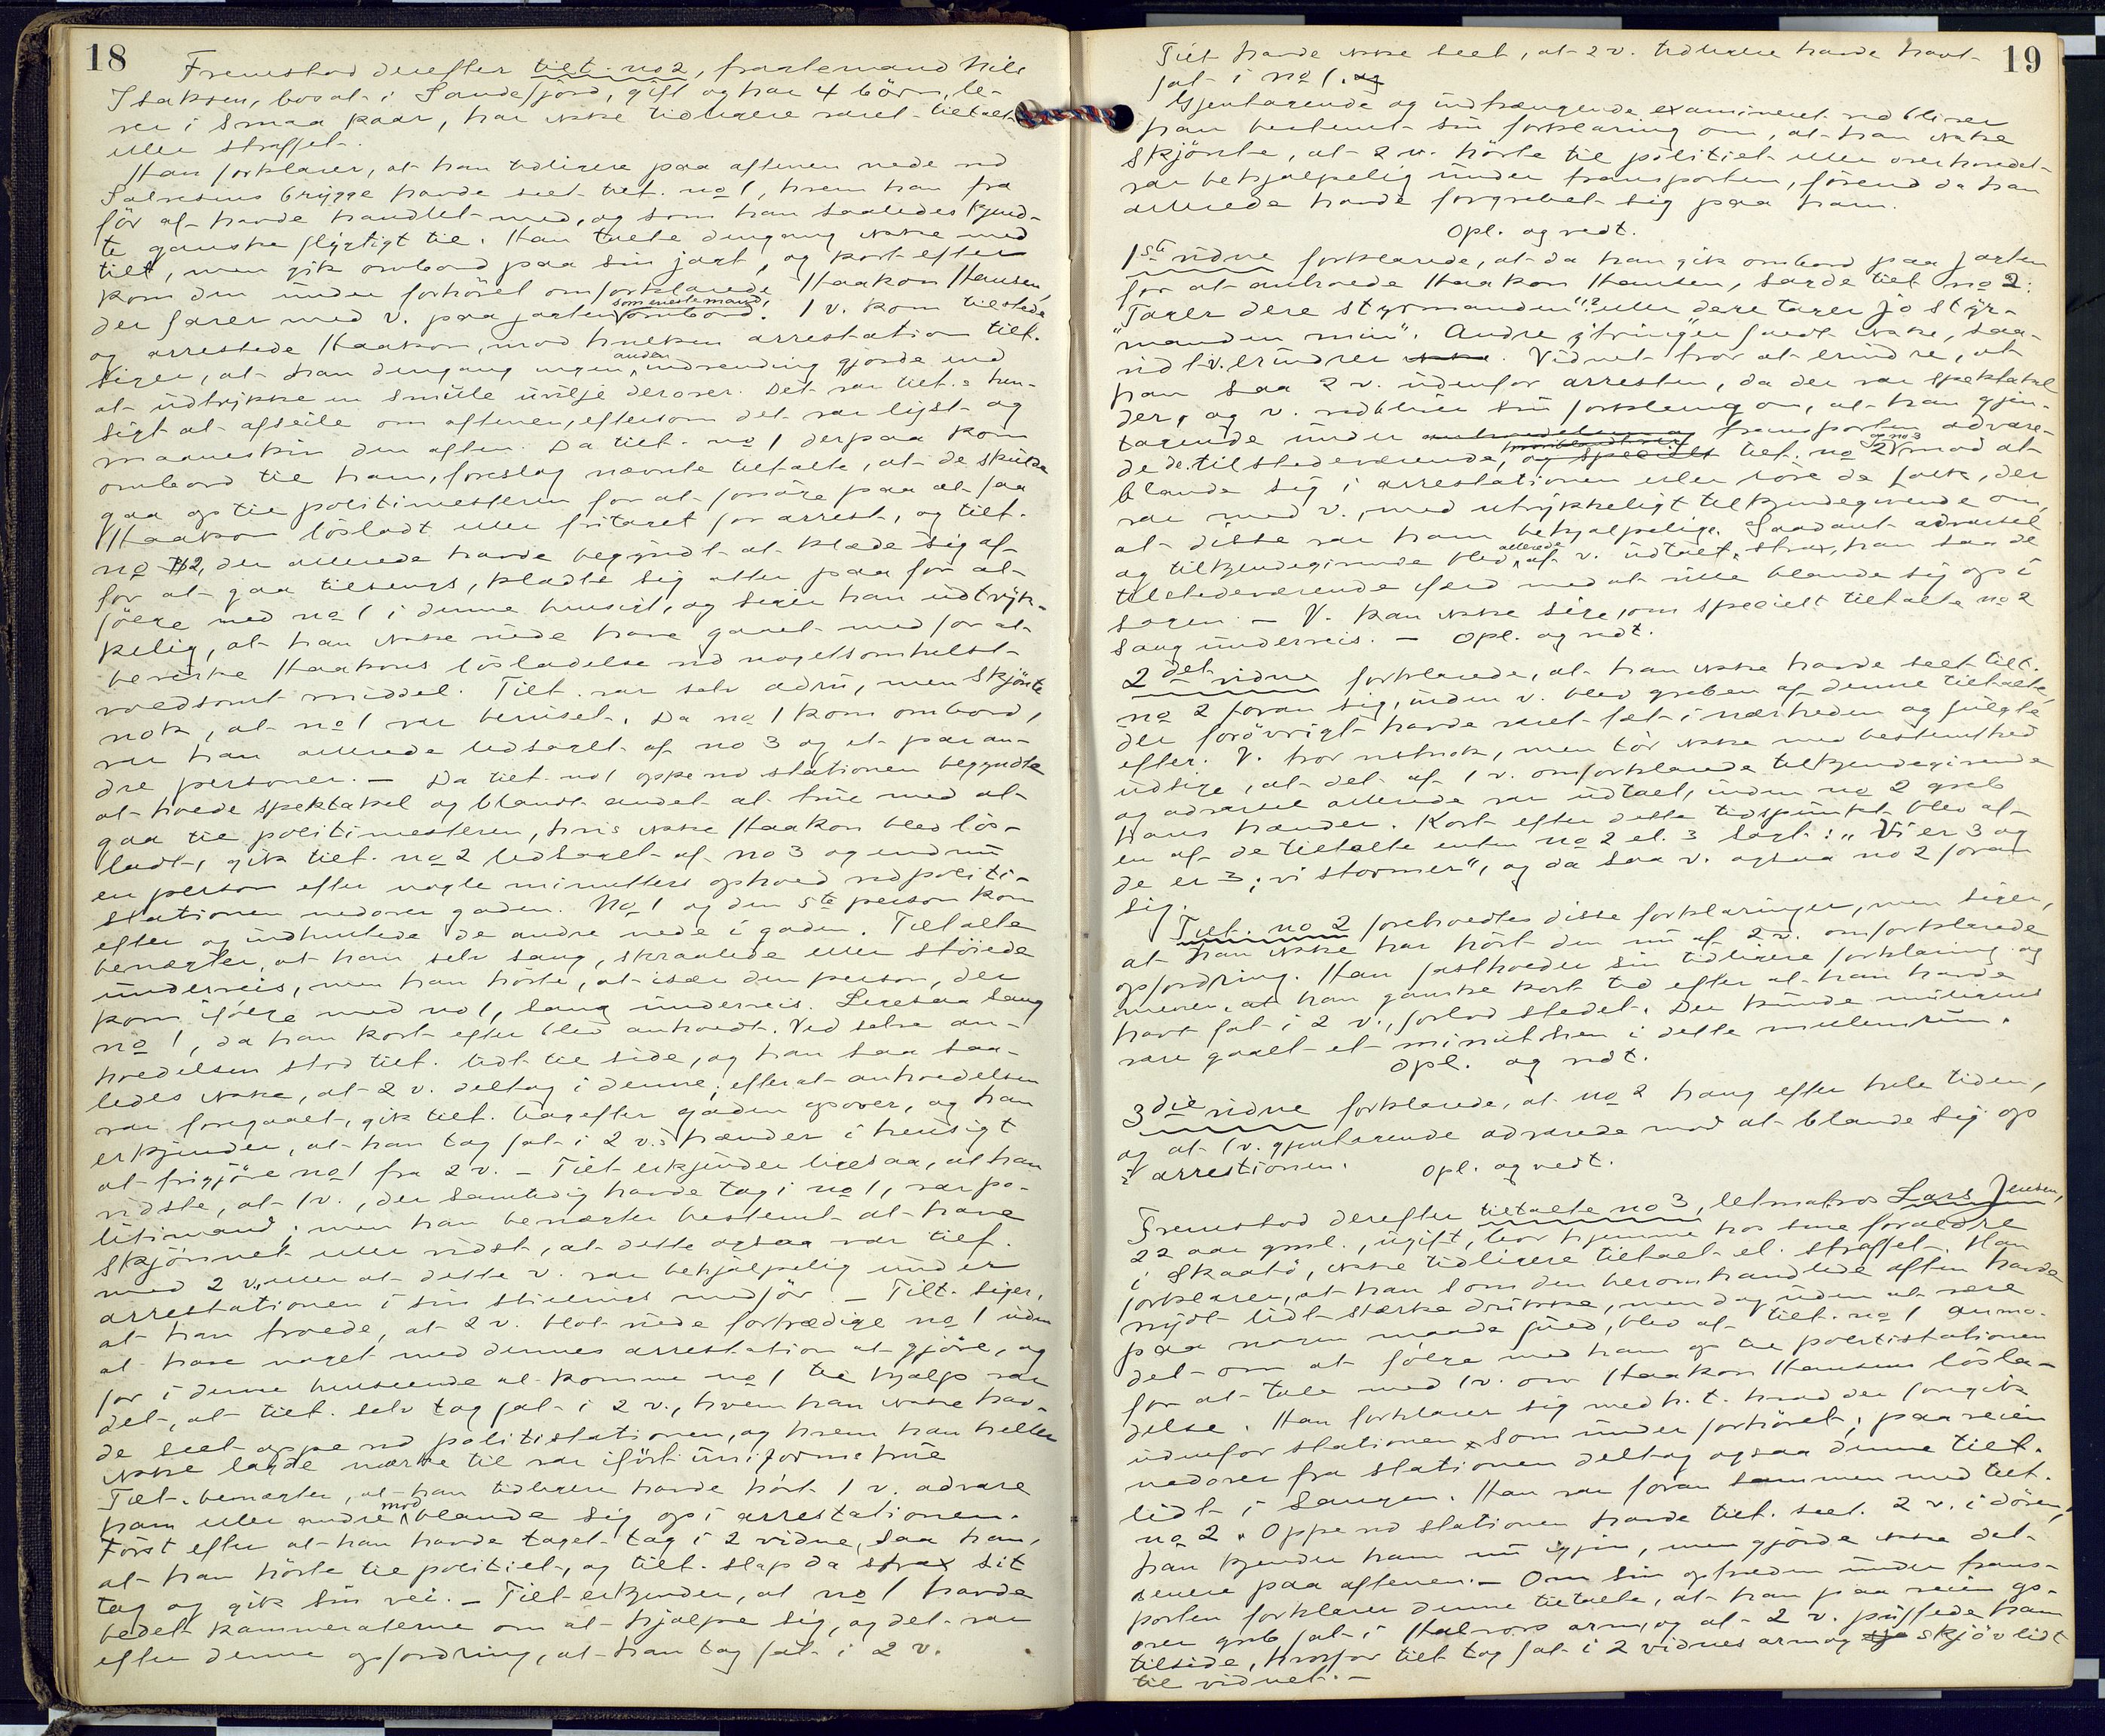 18
Fremstod derefter tilt. no 2, fragtemand Nils
Isaksen, bosat i Sandefjord, gift og har 4 börn, le-
ver i smaa kaar, har ikke tidligere været tiltalt
eller straffet.
Han forklarer, at han tidligere paa aftenen nede ved
Salvesens brygge havde seet tilt. no 1, hvem han fra
för af havde handlet med, og som han saaledes kjend-
te ganske flygtigt til. Han talte dengang ikke med
tilt, men gik ombord paa sin jagt, og kort efter
kom den under forhöret omforklarede Haakon Hansen,
der farer med v. paa jagten som eneste mand, ombord. 1 v. kom tilstede
og arrestede Haakon, mod hvilken arrestation tilt.
siger, at han dengang ingen anden indvending gjorde end
at udtrykke en smule uvilje derover. Det var tilt.s hen-
sigt at afseile om aftenen, eftersom det var lyst og
maaneskin den aften. Da tilt. no 1 derpaa kom
ombord til ham, foreslog nævnte tiltalte, at de skulde
gaa op til politimesteren for at forsöge paa at faa
Haakon lösladt eller fritaget for arrest, og tilt.
no 2, der allerede havde begyndt at klæde sig af
for at gaa tilsengs, klædte sig atter paa for at
fölge med no 1 i denne hensigt, og siger han udtryk-
kelig, at han ikke vilde have gaaet med for at
bevirke Haakons lösladelse ved nogetsomhelst
voldsomt middel. Tilt. var selv ædru, men skjönte
nok, at no 1 var beruset. Da no 1 kom ombord,
var han allerede ledsaget af no 3 og et par an-
dre personer. – Da tilt. no 1 oppe ved stationen begyndte
at holde spektakel og blandt andet at true med at
gaa til politimesteren, hvis ikke Haakon blev lös-
ladt, gik tilt. no 2 ledsaget af no 3 og endnu
en person efter nogle minutters ophold ved politi-
stationen nedover gaden. No 1 og den 5te person kom
efter og indhentede de andre nede i gaden. Tiltalte
benægter, at han selv sang, skraalede eller stöiede
underveis, men han hörte, at især den person, der
kom ifölge med no 1, sang underveis. Ligesaa sang
no 1, da han kort efter blev anholdt. Ved selve an-
holdelsen stod tilt. lidt til side, og han saa saa-
ledes ikke, at 2 v. deltog i denne; efterat anholdelsen
var foregaaet, gik tilt. bagefter gaden opover, og han
erkjender, at han tog fat i 2 v.s hænder i hensigt
at frigjöre no 1 fra 2 v. – Tilt. erkjender ligesaa, at han
vidste, at 1 v., der samtidig havde tag i no 1, var po-
litimand; men han benægter bestemt at have
skjönnet eller vidst, at dette ogsaa var tilf.
med 2 v., eller at dette v. var behjælpelig under
arrestationen i sin stillings medför. – Tilt. siger,
at han troede, at 2 v. blot vilde fortrædige no 1 uden
at have noget med dennes arrestation at gjöre, og
for i denne henseende at komme no 1 til hjælp var
det, at tilt. selv tog fat i 2 v., hvem han ikke hav-
de seet oppe ved politistationen, og hvem han heller
ikke lagde mærke til var iført uniformshue
Tilt. benægter, at han tidligere havde hört 1 v. advare
ham eller andre mod blande sig op i arrestationen.
Först efter at han havde taget tag i 2 vidne, saa han,
at han hörte til politiet, og tilt. slap da strax sit
tag og gik sin vei. – Tilt. erkjender, at no 1 havde
bedet kammeraterne om at hjælpe sig, og det var
efter denne opfordring, at han tog fat i 2 v.
19
Tilt havde ikke seet, at 2 v. tidligere havde havt
fat i no 1. og
Gjentagende og indtrængende examineret vedbliver
han bestemt sin forklaring om, at han ikke
skjönte, at 2 v. hörte til politiet eller overhovedet
var behjælpelig under transporten, förend da han
allerede havde forgrebet sig paa ham.
Opl. og vedt.
1ste vidne forklarede, at da han gik ombord paa jagten
for at anholde Haakon Hansen, sagde tilt no 2:
"Tager dere styrmanden"? eller dere tager jo styr-
"manden min". Andre ytringer faldt ikke, saa-
vidt v. erindrer ikke. Vidnet tror at erindre, at
han saa 2 v. udenfor arresten, da der var spektakel
der, og v. vedbliver sin forklaring om, at han gjen-
tagende under anholdelsen og transporten advare-
de de tilstedeværende, hvoriblandt ogsaa og specielt tilt. no 2 og no 3 mod at
blande sig i arrestationen eller röre de folk, der
var med v., med utrykkeligt tilkjendegivende om,
at disse var ham behjælpelige. Saadant advarsel
og tilkjendegivende blev allerede af v. udtalt, strax, han saa de
tilstedeværende ifærd med at ville blande sig op i
sagen. – V. kan ikke sige, om specielt tiltalte no 2
sang underveis. – Opl. og vedt.
2det vidne forklarede, at han ikke havde seet tilt.
no 2 foran sig, inden v. blev greben af denne tiltalte,
der forövrigt havde været tæt i nærheden og fulgte
efter. V. tror nok, men tör ikke med bestemthed
udsige, at det af 1 v. omforklarede tilkjendegivende
og advarsel allerede var udtalt, inden no 2 greb
hans hænder. Kort efter dette tidspunkt blev af
en af de tiltalte enten no 2 el. 3 sagt: "Vi er 3 og
de er 3; vi stormer", og da saa v. ogsaa no 2 foran
sig.
Tilt. no 2 foreholdtes disse forklaringer, men siger,
at han ikke har hört den nu af 2 v. omforklarede
opfordring. Han fastholder sin tidligere forklaring og
mener, at han ganske kort tid efter at han havde
havt fat i 2 v., forlod stedet. Der kunde muligens
være gaaet et minut hen i dette mellemrum.
Opl. og vedt.
3die vidne forklarede, at no 2 hang efter hele tiden,
og at 1 v. gjentagende advarede mod at blande sig op
i arrestionen. Opl. og vedt.
Fremstod derefter tiltalte no 3, letmatros Lars Jensen,
22 aar gml., ugift, bor hjemme hos sine foraeldre
i Skaatö, ikke tidligere tiltalt el. straffet. Han
forklarer, at han som den heromhandlede aften havde
nydt lidt stærke drikke, men dog uden at være
paa nogen maade fuld, blev af tilt. no 1 anmo-
det om at fölge med ham op til politistationen
for at tale med 1 v. om Haakon Hansens lösla-
delse. Han forklarer sig med h. t. hvad der foregik
udenfor stationen som under forhöret; paa veien
nedover fra stationen deltog ogsaa denne tilt.
lidt i sangen. Han var foran sammen med tilt.
no 2. Oppe ved stationen havde tilt. seet 2 v. i dören,
han kjender ham nu igjen, men gjorde ikke det
senere paa aftenen. – Om sin optræden under trans-
porten forklarer denne tiltalte, at han paa veien op-
over greb fat i Halvors arm, og at 2 v. puffede ham
tilside, hvorfor tilt tog fat i 2 vidnes arm og skjöv lidt
til vidnet. –